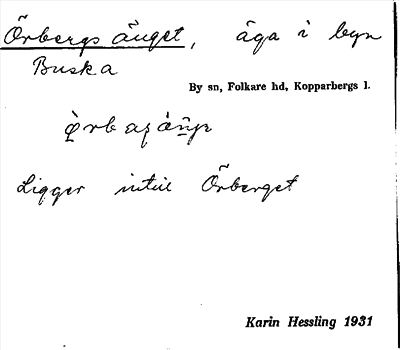 Örbergs änget, äga i byn
Buska
By sn, Folkare hd, Kopparbergs l.
Ligger intill Örberget
Karin Hessling 1931